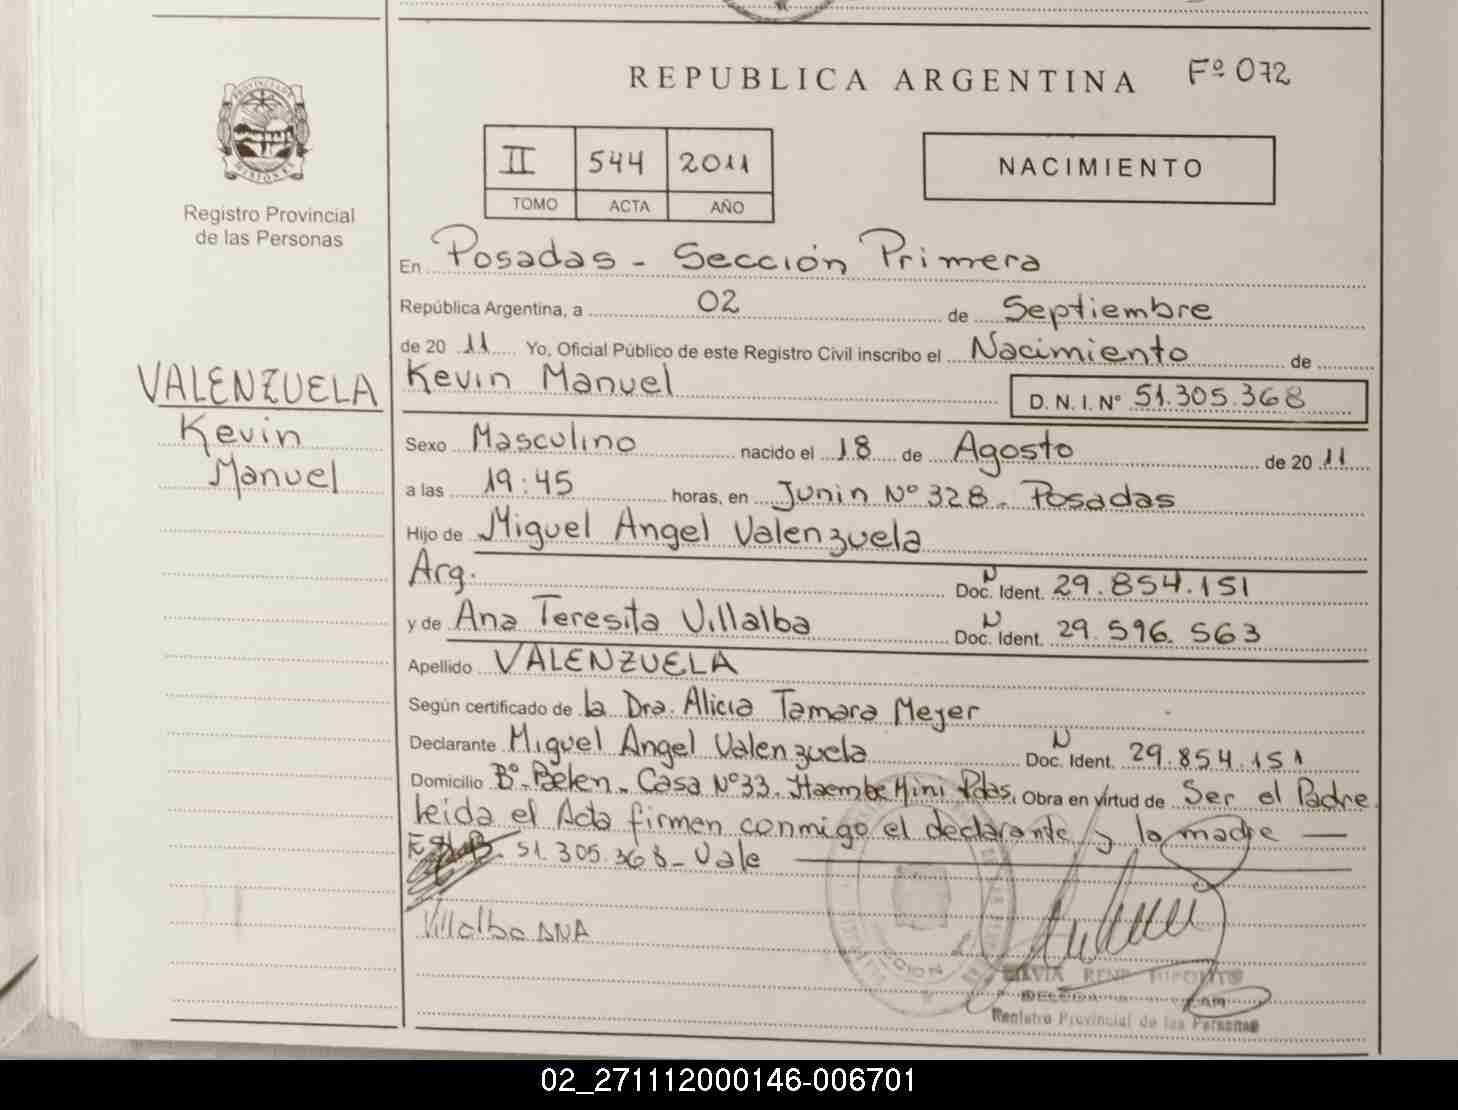 REPUBLICA ARGENTINA Fº 072
PROVINCIA DE MISIONES
II 544 2011
TOMO ACTA AÑO
NACIMIENTO
Registro Provincial
de las Personas
En Posadas - Sección Primera
República Argentina, a 02 de Septiembre
de 20 11 Yo, Oficial Público de este Registro Civil inscribo el Nacimiento de
Kevin Manuel D. N. I. Nº 51.305.368
VALENZUELA
Kevin
Manuel
Sexo Masculino nacido el 18 de Agosto de 20 11
a las 19:45 horas, en Junin Nº 328 - Posadas
Hijo de Miguel Angel Valenzuela
Arg. Doc. Ident. N 29.854.151
y de Ana Teresita Villalba Doc. Ident. N 29.596.563
Apellido VALENZUELA
Según certificado de la Dra. Alicia Tamara Meyer
Declarante Miguel Angel Valenzuela Doc. Ident. N 29.854.151
Domicilio Bº Belen - Casa Nº 33. Itaembe Mini Pdas. Obra en virtud de Ser el Padre
leida el Acta firmen conmigo el declarante y la madre —
51.305.368 - Vale
Villalba ANA
Registro Provincial de las Personas
02_271112000146-006701